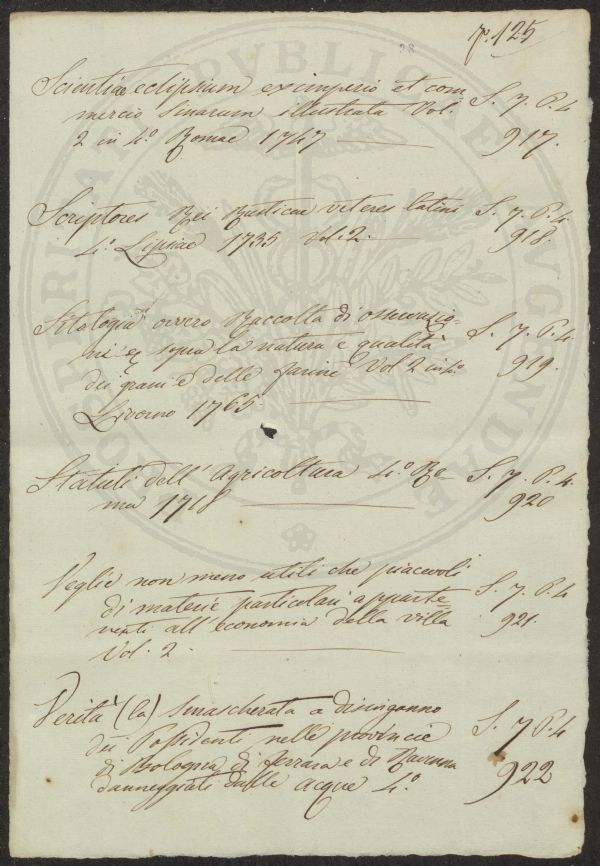 7. 125
28
Scientiae eclipsium ex imperio et com
mercio Sinarum illustrata Vol. S. 7. P. 4
2 in 4.° Romae 1747 917.
Scriptores Rei Rusticae veteres latini S. 7. P. 4
4.° Lipsiae 1735 Vol. 2. 918.
Sitologia ovvero Raccolta di osservazio- S. 7. P. 4
ni sopra la natura e qualità 919.
dei grani e delle farine Vol 2 in 4.°
Livorno 1765
Statuti dell' Agricoltura 4.° Ro- S. 7. P. 4
ma 1718 920
Veglie non meno utili che piacevoli S. 7. P. 4
di materie particolari apparte= 921.
nenti all' economia della villa
Vol. 2
Verità (la) smascherata a disinganno S. 7 P. 4
dei Possidenti nelle provincie 922
di Bologna di Ferrara e di Ravenna
danneggiati dalle acque 4.°